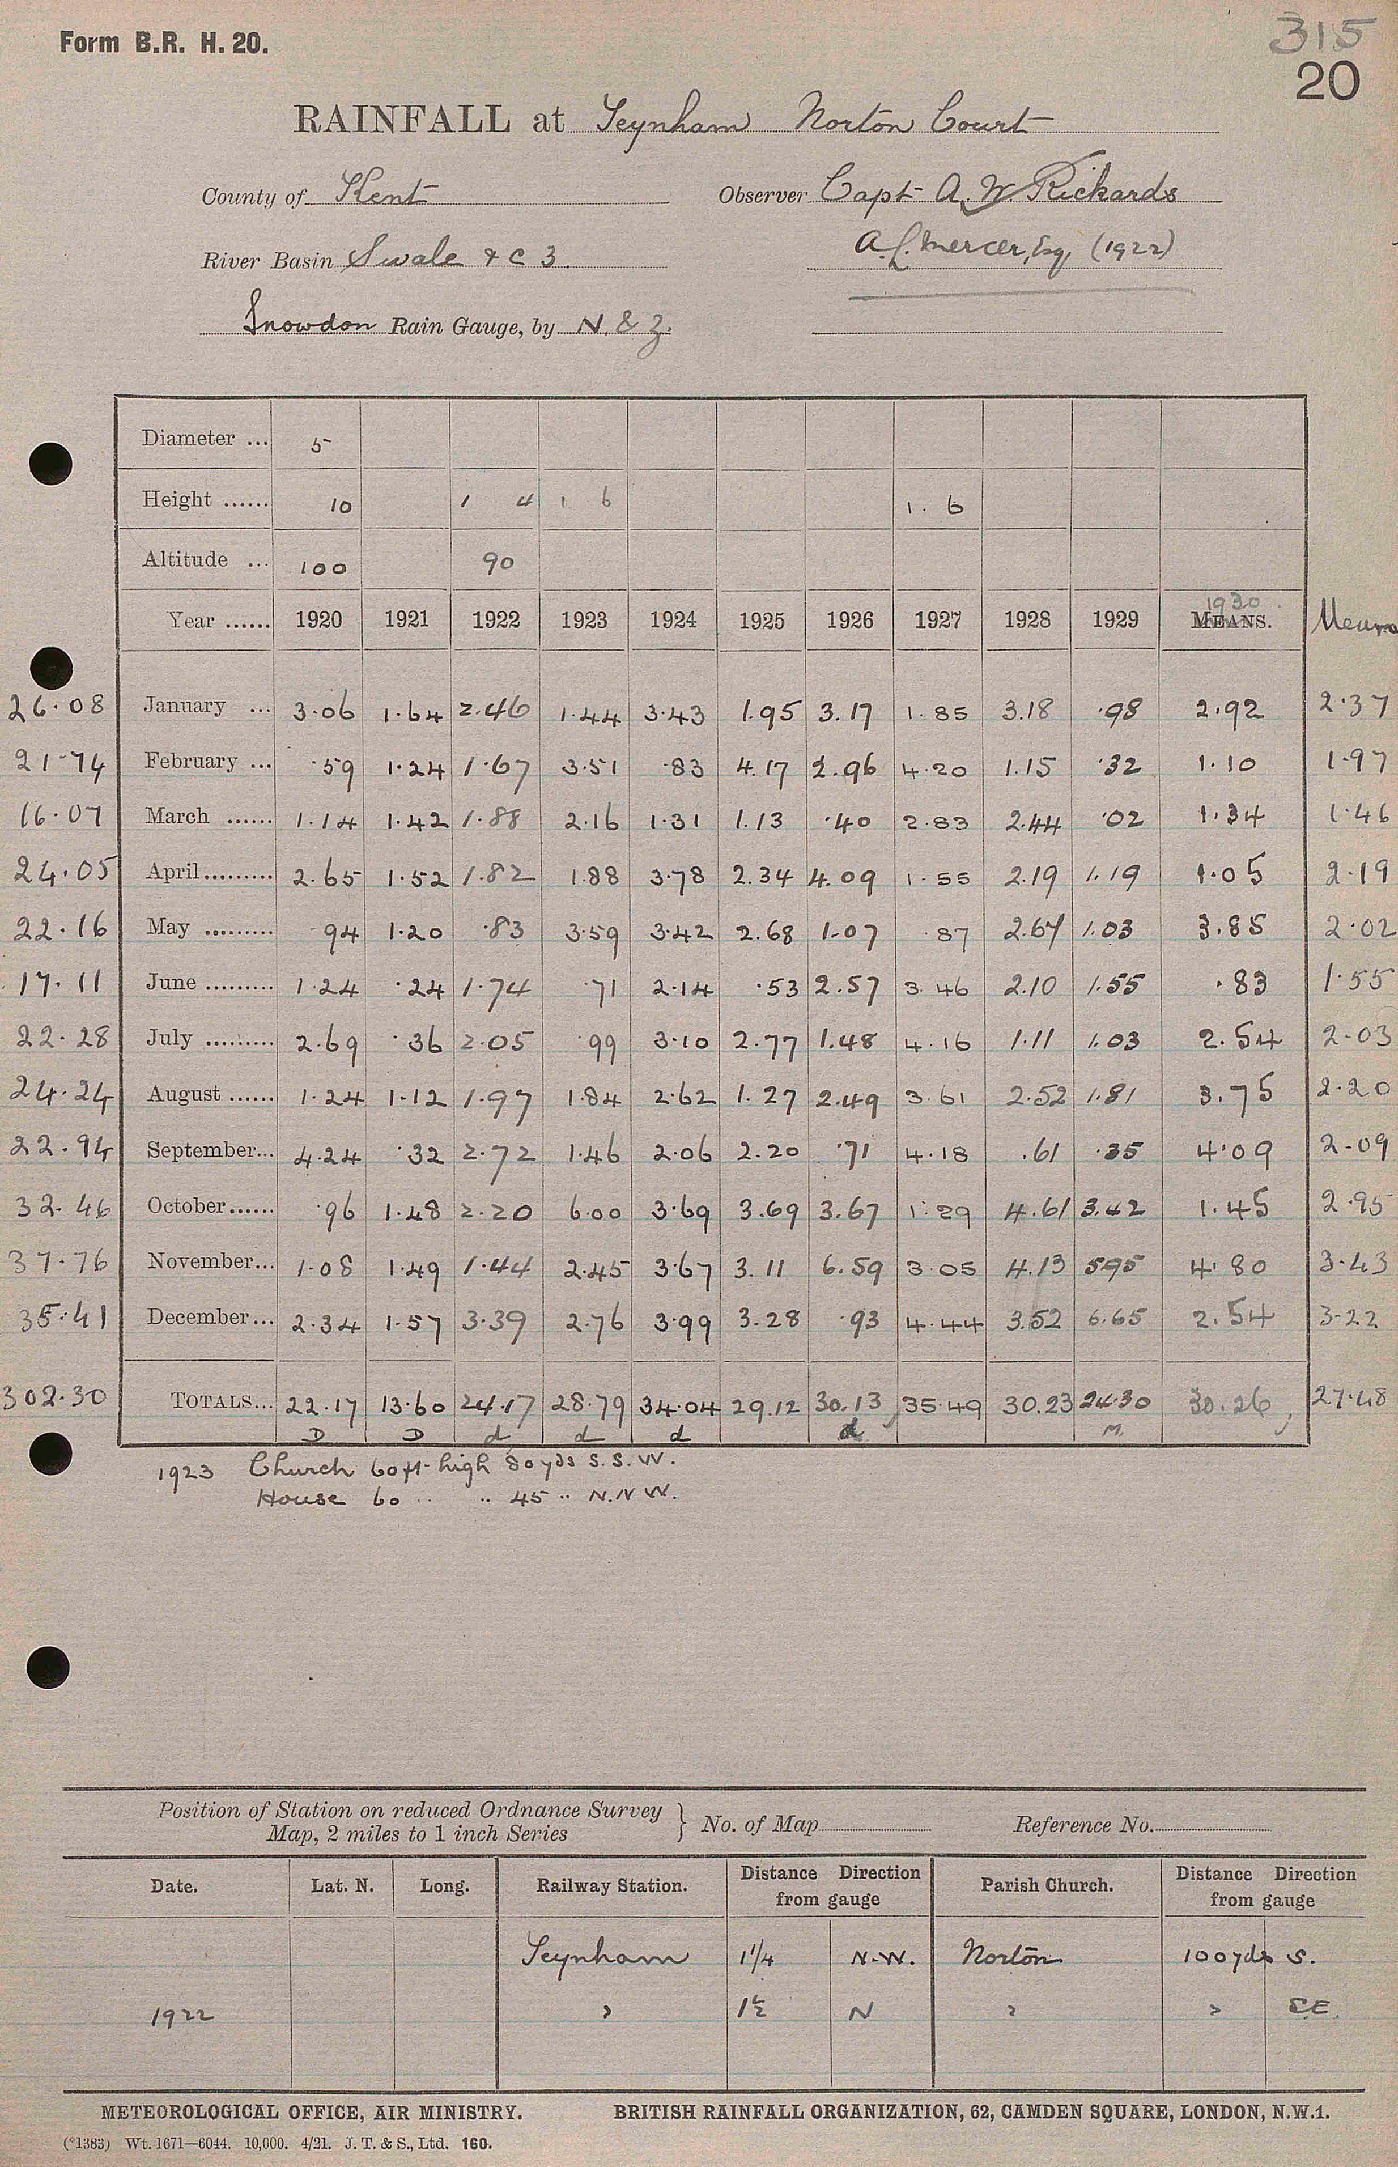 Form B.R. H. 20.
315
20
RAINFALL at Teynham Norton Court
County of Kent Observer Capt A. W. Rickards
River Basin Swale & C 3 A. L. Mercer, Esq, (1922)
Snowdon Rain Gauge, by N. & Z.
Diameter ... 5
Height ...... 10 1 4 1 6 1. 6
Altitude ... 100 90
Year ...... 1920 1921 1922 1923 1924 1925 1926 1927 1928 1929 MEANS. 1930 Means
26.08 January ... 3.06 1.64 2.46 1.44 3.43 1.95 3.17 1.85 3.18 .98 2.92 2.37
21.74 February ... .59 1.24 1.67 3.51 .83 4.17 2.96 4.20 1.15 .32 1.10 1.97
16.07 March ...... 1.14 1.42 1.88 2.16 1.31 1.13 .40 2.83 2.44 .02 1.34 1.46
24.05 April ......... 2.65 1.52 1.82 1.88 3.78 2.34 4.09 1.55 2.19 1.19 1.05 2.19
22.16 May ......... .94 1.20 .83 3.59 3.42 2.68 1.07 .87 2.67 1.03 3.85 2.02
17.11 June ......... 1.24 .24 1.74 .71 2.14 .53 2.57 3.46 2.10 1.55 .83 1.55
22.28 July ......... 2.69 .36 2.05 .99 3.10 2.77 1.48 4.16 1.11 1.03 2.54 2.03
24.24 August ...... 1.24 1.12 1.97 1.84 2.62 1.27 2.49 3.61 2.52 1.81 3.75 2.20
22.94 September... 4.24 .32 2.72 1.46 2.06 2.20 .71 4.18 .61 .35 4.09 2.09
32.46 October...... .96 1.48 2.20 6.00 3.69 3.69 3.67 1.29 4.61 3.42 1.45 2.95
37.76 November... 1.08 1.49 1.44 2.45 3.67 3.11 6.59 3.05 4.13 5.95 4.80 3.43
35.41 December... 2.34 1.57 3.39 2.76 3.99 3.28 .93 4.44 3.52 6.65 2.54 3.22
302.30 TOTALS... 22.17 13.60 24.17 28.79 34.04 29.12 30.13 35.49 30.23 24.30 30.26 27.48
D D d d d d M
1923 Church 60 ft high 80 yds S.S.W.
House 60 .. .. 45 .. N.N.W.
Position of Station on reduced Ordnance Survey
Map, 2 miles to 1 inch Series } No. of Map Reference No.
Date. Lat. N. Long. Railway Station. Distance Direction from gauge Parish Church. Distance Direction from gauge
Teynham 1 1/4 N.W. Norton 100 yds S.
1922 " 1 1/2 N " " S.E.
METEOROLOGICAL OFFICE, AIR MINISTRY. BRITISH RAINFALL ORGANIZATION, 62, CAMDEN SQUARE, LONDON, N.W.1.
(*1383) Wt. 1671—6044. 10,000. 4/21. J. T. & S., Ltd. 160.